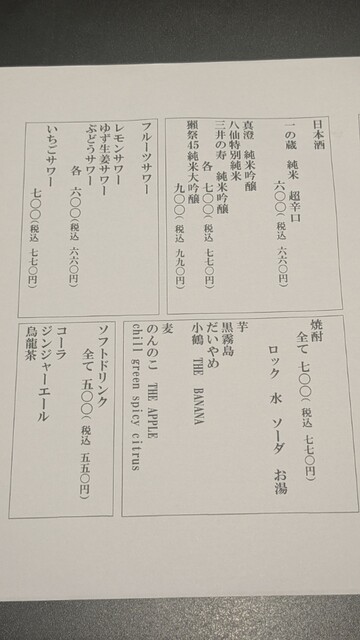 日本酒
一の蔵　純米　超辛口
六〇〇（税込　六六〇円）
真澄　純米吟醸
八仙特別純米
三井の寿　純米吟醸
各　七〇〇（税込　七七〇円）
獺祭45純米大吟醸
九〇〇（税込　九九〇円）
フルーツサワー
レモンサワー
ゆず生姜サワー
ぶどうサワー
各　六〇〇（税込　六六〇円）
いちごサワー
七〇〇（税込　七七〇円）
焼酎
全て　七〇〇（税込　七七〇円）
ロック　水　ソーダ　お湯
芋
黒霧島
だいやめ
小鶴　THE　BANANA
麦
のんのこ　THE APPLE
chill green spicy citrus
ソフトドリンク
全て　五〇〇（税込　五五〇円）
コーラ
ジンジャーエール
烏龍茶